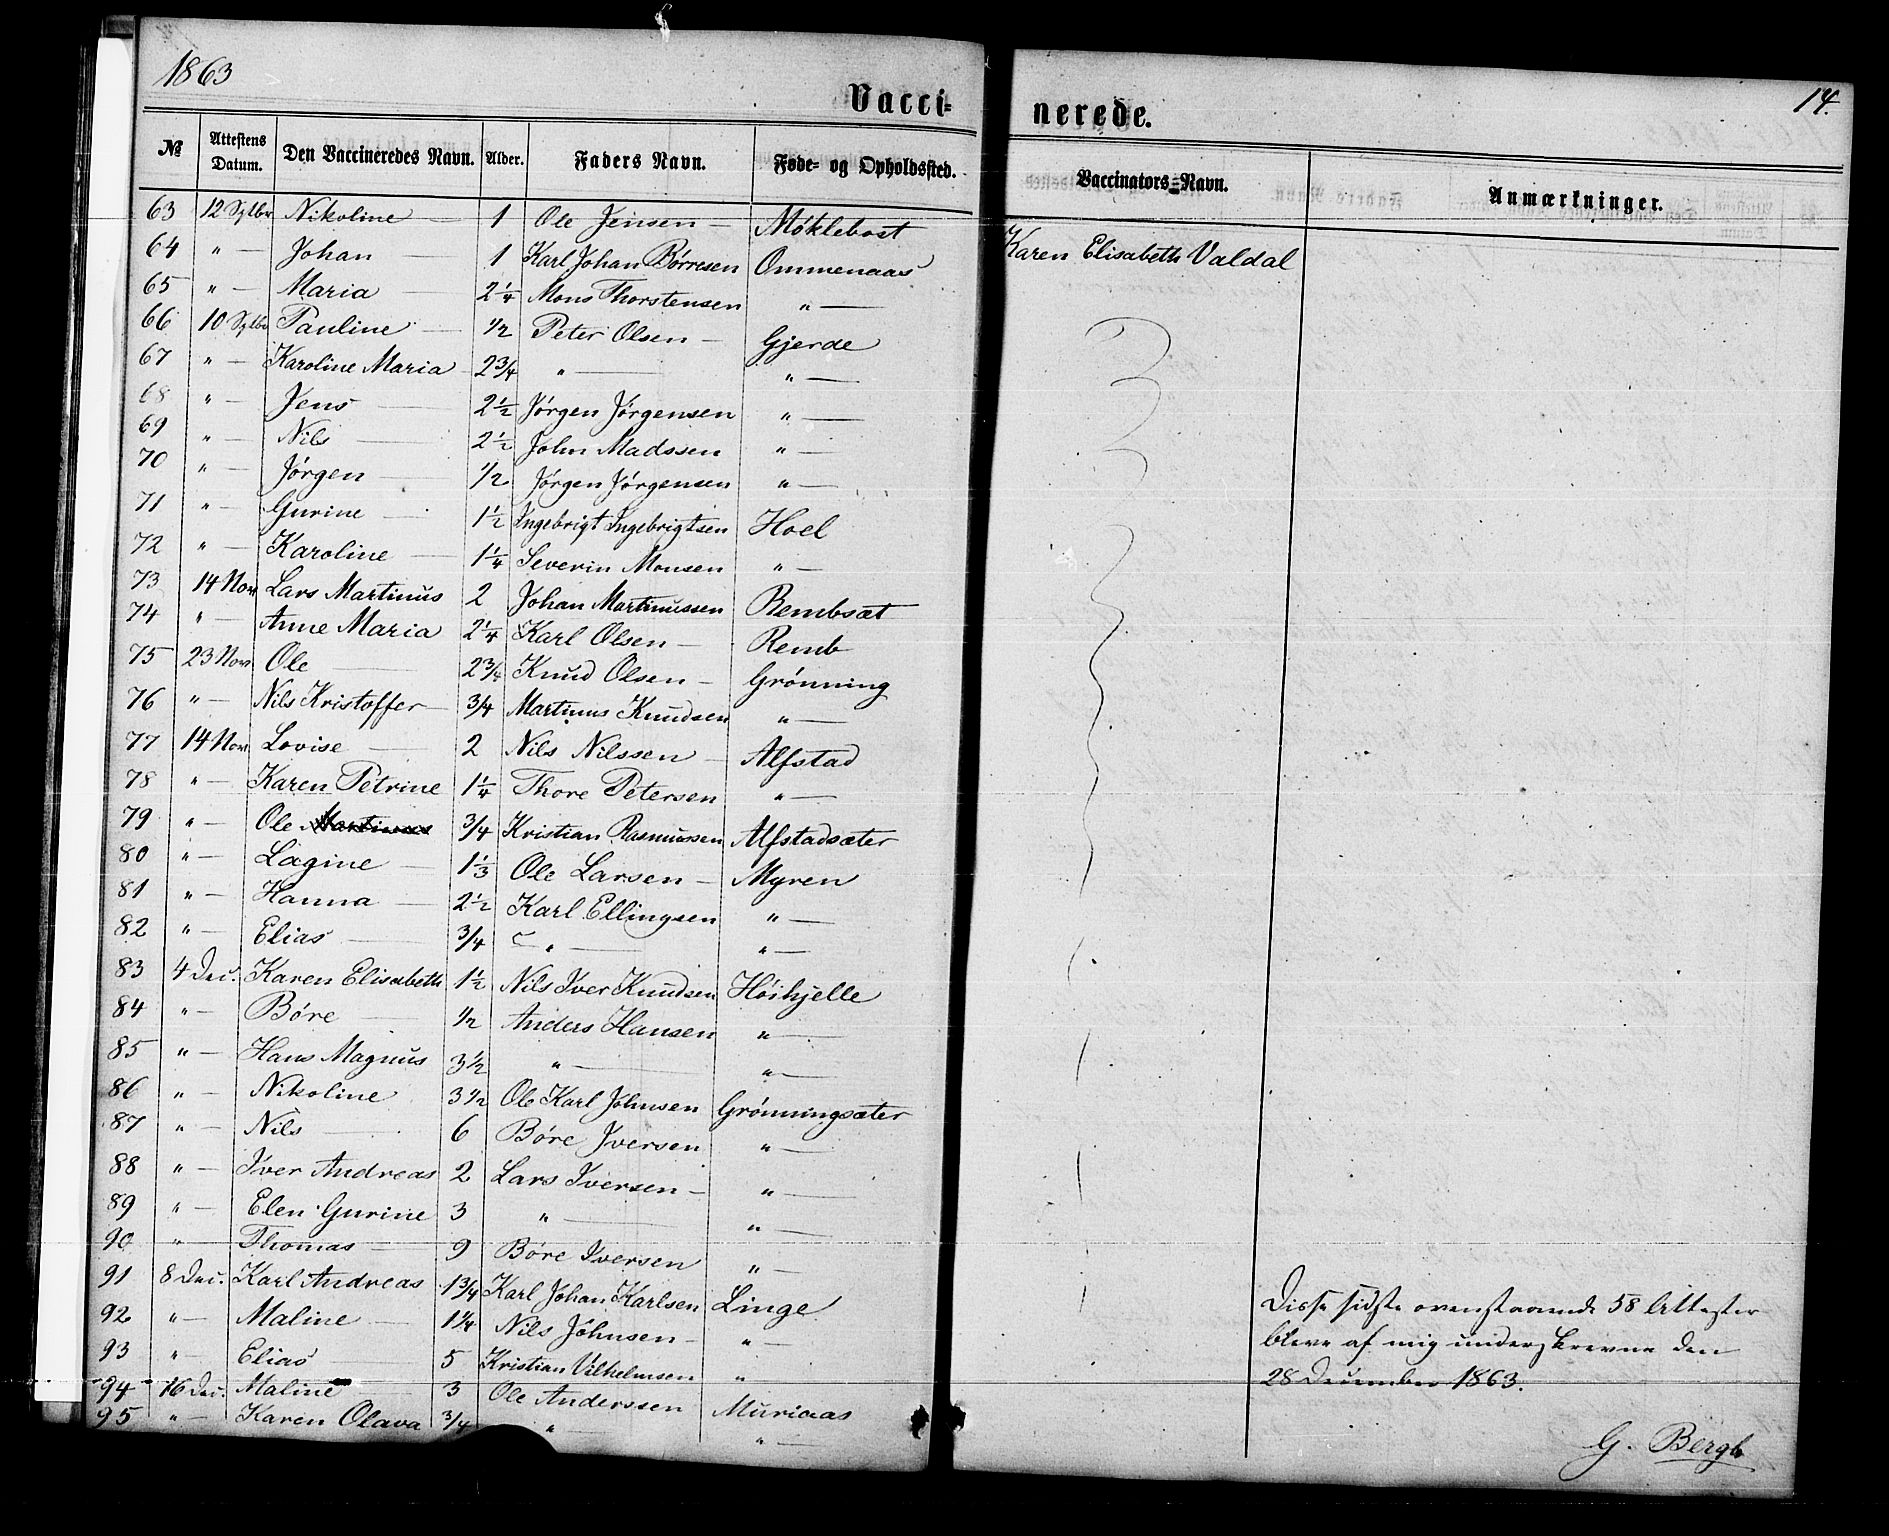 1863
14.
Vacci-
nerede.
№ Attestens Datum. Den Vaccineredes Navn. Alder. Faders Navn. Føde- og Opholdssted. Vaccinators-Navn. Anmærkninger.
63 12 Sptbr Nikoline — 1 Ole Jensen — Møklebost Karen Elisabeth Valdal
64 " — Johan — 1 Karl Johan Børresen Ommenaas
65 " — Maria — 2¼ Mons Thorstensen " —
66 10 Sptbr Pauline — ½ Peter Olsen — Gjerde
67 " — Karoline Maria 2¾ " — " —
68 " — Jens — 2½ Jørgen Jørgensen " —
69 " — Nils — 2½ John Madssen " —
70 " — Jørgen — ½ Jørgen Jørgensen " —
71 " — Gurine — 1½ Ingebrigt Ingebrigtsen Hoel
72 " — Karoline — 1¼ Severin Monsen " —
73 14 Nov Lars Martinus 2 Johan Martinussen Rembsæt
74 " — Anne Maria 2¼ Karl Olsen — Remb
75 23 Nov. Ole — 2¾ Knud Olsen — Grønning
76 " — Nils Kristoffer — ¾ Martinus Knudsen " —
77 14 Nov. Lovise — 2 Nils Nilssen — Alfstad
78 " — Karen Petrine 1¼ Thore Petersen " —
79 " — Ole Martinus ¾ Kristian Rasmussen Alfstadsæter
80 " — Lagine — 1⅓ Ole Larsen — Myren
81 " — Hanna — 2½ Karl Ellingsen " —
82 " — Elias — ¾ " — " —
83 4 Dec. Karen Elisabeth 1½ Nils Iver Knudsen Høihjelle
84 " — Børe — ½ Anders Hansen " —
85 " — Hans Magnus 3½ " — " —
86 " — Nikoline — 3½ Ole Karl Johnsen Grønningsæter
87 " — Nils — 6 Børe Iversen " —
88 " — Iver Andreas 2 Lars Iversen — " —
89 " — Elen Gurine 3 " — " —
90 " — Thomas — 9 Børe Iversen " —
91 8 Dec. Karl Andreas 1¾ Karl Johan Karlsen Linge
92 " — Maline — 1¼ Nils Johnsen — " —
93 " — Elias — 5 Kristian Vilhelmsen "
94 16 Dec. Maline — 3 Ole Anderssen Muriaas
95 " — Karen Olava ¾ " — " —
Disse sidste ovenstaaende 58 Attester
bleve af mig underskrevne den
28 December 1863.
G. Bergh